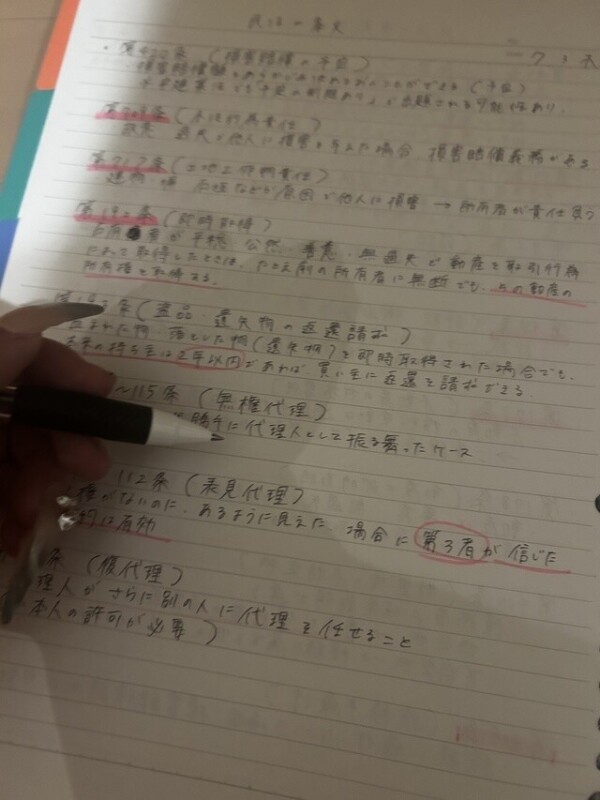 民法の条文
・第420条 (損害賠償の予定)
損害賠償額をあらかじめ決めておくことができる (予定)
第709条 (不法行為責任)
故意・過失で他人に損害を与えた場合、損害賠償義務がある
第717条 (土地工作物責任)
建物・塀・石垣などが原因で他人に損害 → 所有者が責任負う
第192条 (即時取得)
占有者が平穏・公然・善意・無過失で動産を取引行為
によって取得したときは、たとえ前の所有者に無断でも、その動産の
所有権を取得する。
第193条 (盗品・遺失物の返還請求)
盗まれた物・落とした物 (遺失物) を即時取得された場合でも、
本来の持ち主は2年以内であれば買い主に返還を請求できる。
~115条 (無権代理)
勝手に代理人として振る舞ったケース
112条 (表見代理)
権がないのに、あるように見えた場合に第3者が信じた
は有効
条 (復代理)
理人がさらに別の人に代理を任せること
本人の許可が必要)